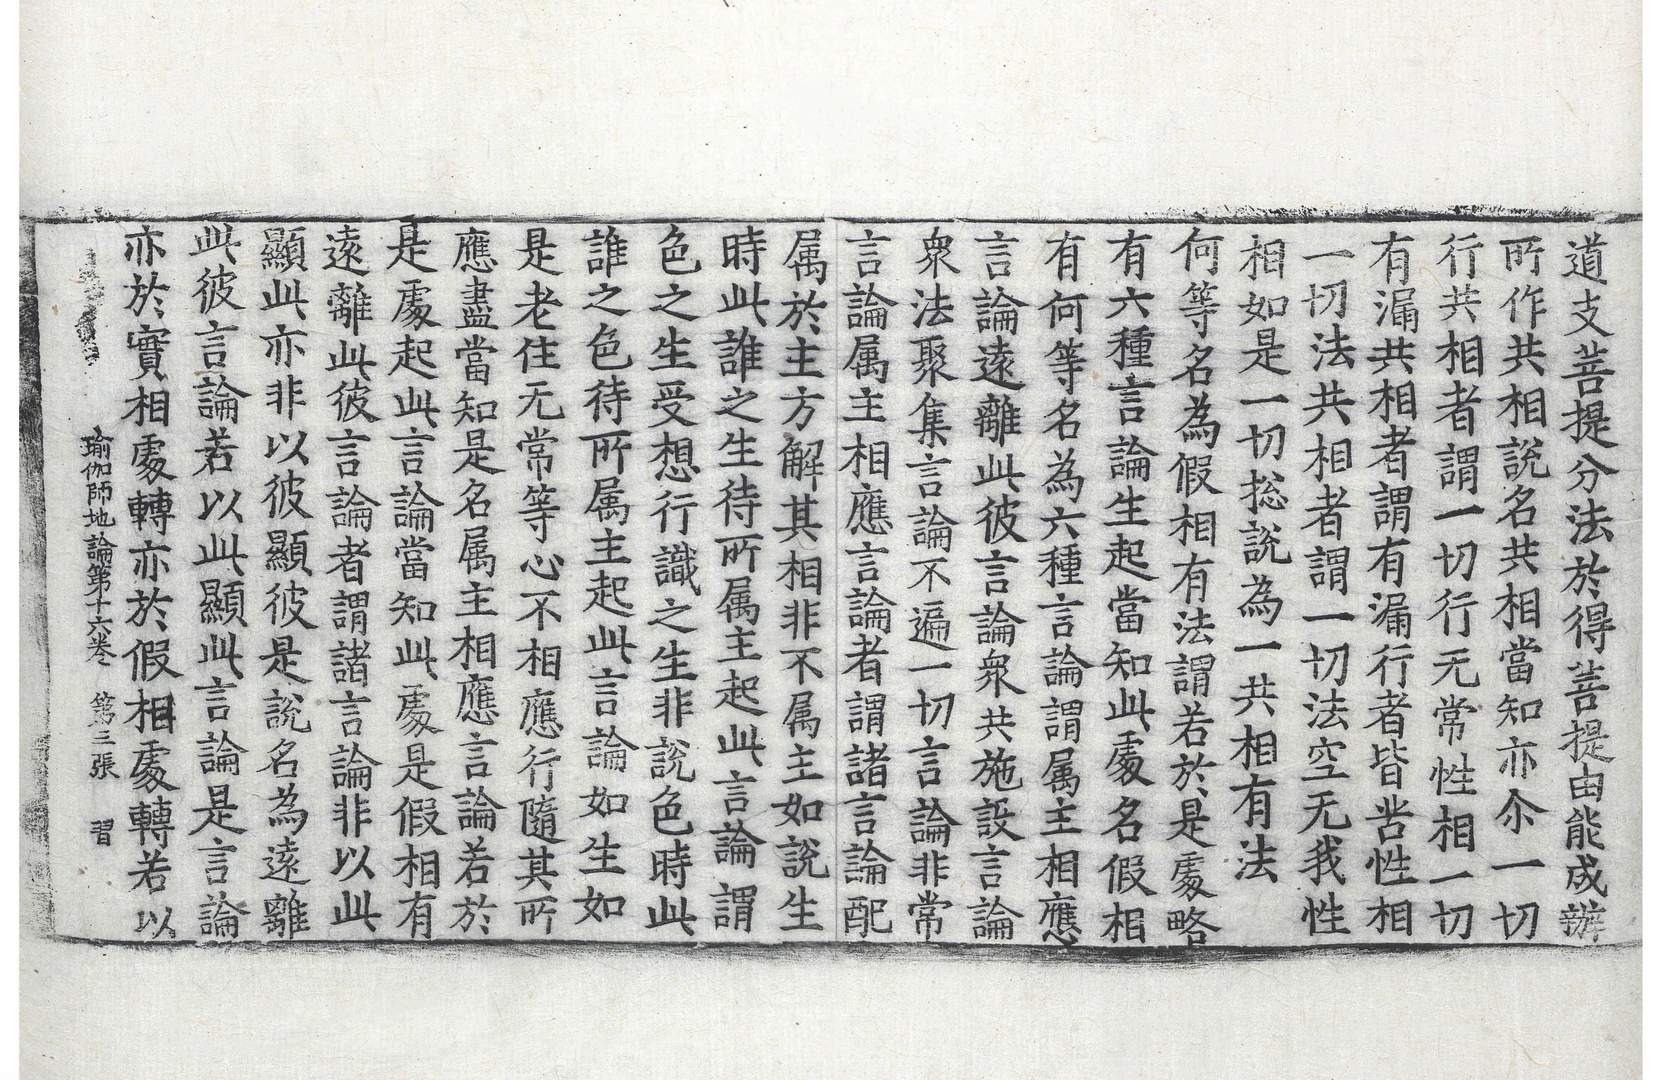 道支菩提分法於得菩提由能成辦
所作共相說名共相當知亦尒一切
行共相者謂一切行无常性相一切
有漏共相者謂有漏行者皆苦性相
一切法共相者謂一切法空无我性
相如是一切捴說為一共相有法
何等名為假相有法謂若於是處略
有六種言論生起當知此處名假相
有何等名為六種言論謂属主相應
言論遠離此彼言論衆共施設言論
衆法聚集言論不遍一切言論非常
言論属主相應言論者謂諸言論配
属於主方解其相非不属主如說生
時此誰之生待所属主起此言論謂
色之生受想行識之生非說色時此
誰之色待所属主起此言論如生如
是老住无常等心不相應行隨其所
應盡當知是名属主相應言論若於
是處起此言論當知此處是假相有
遠離此彼言論者謂諸言論非以此
顯此亦非以彼顯彼是說名為遠離
此彼言論若以此顯此言論是言論
亦於實相處轉亦於假相處轉若以
瑜伽師地論第十六卷 第三張 習